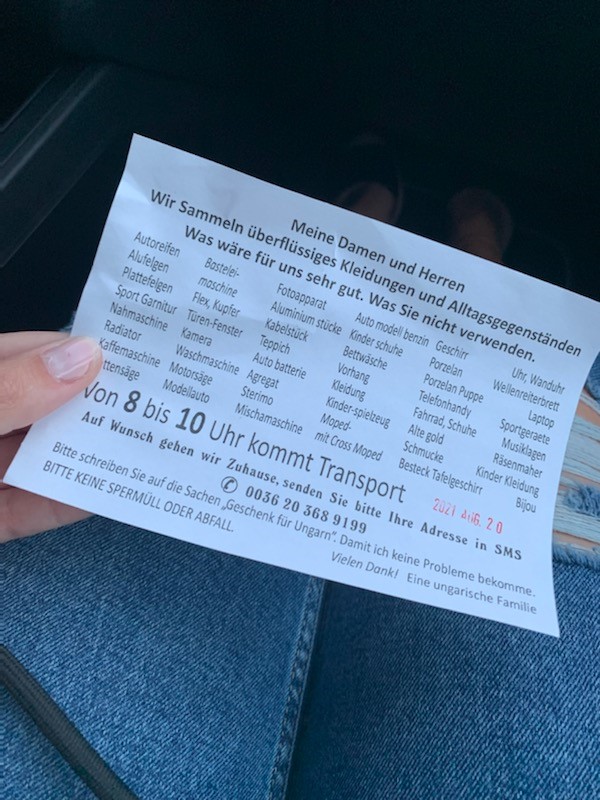 Meine Damen und Herren
Wir Sammeln überflüssiges Kleidungen und Alltagsgegenständen
Was wäre für uns sehr gut. Was Sie nicht verwenden.
Autoreifen
Alufelgen
Plattefelgen
Sport Garnitur
Nahmaschine
Radiator
Kaffemaschine
ettensäge
Bastelei-
moschine
Flex, Kupfer
Türen-Fenster
Kamera
Waschmaschine
Motorsäge
Modellauto
Fotoapparat
Aluminium stücke
Kabelstück
Teppich
Auto batterie
Agregat
Sterimo
Mischamaschine
Auto modell benzin
Kinder schuhe
Bettwäsche
Vorhang
Kleidung
Kinder-spielzeug
Moped-
mit Cross Moped
Geschirr
Porzelan
Porzelan Puppe
Telefonhandy
Fahrrad, Schuhe
Alte gold
Schmucke
Besteck Tafelgeschirr
Uhr, Wanduhr
Wellenreiterbrett
Laptop
Sportgeraete
Musiklagen
Räsenmaher
Kinder Kleidung
Bijou
Von 8 bis 10 Uhr kommt Transport
2021 AUG. 20
Auf Wunsch gehen wir Zuhause, senden Sie bitte Ihre Adresse in SMS
✆ 0036 20 368 9199
Bitte schreiben Sie auf die Sachen „Geschenk für Ungarn". Damit ich keine Probleme bekomme.
BITTE KEINE SPERMÜLL ODER ABFALL.
Vielen Dank! Eine ungarische Familie